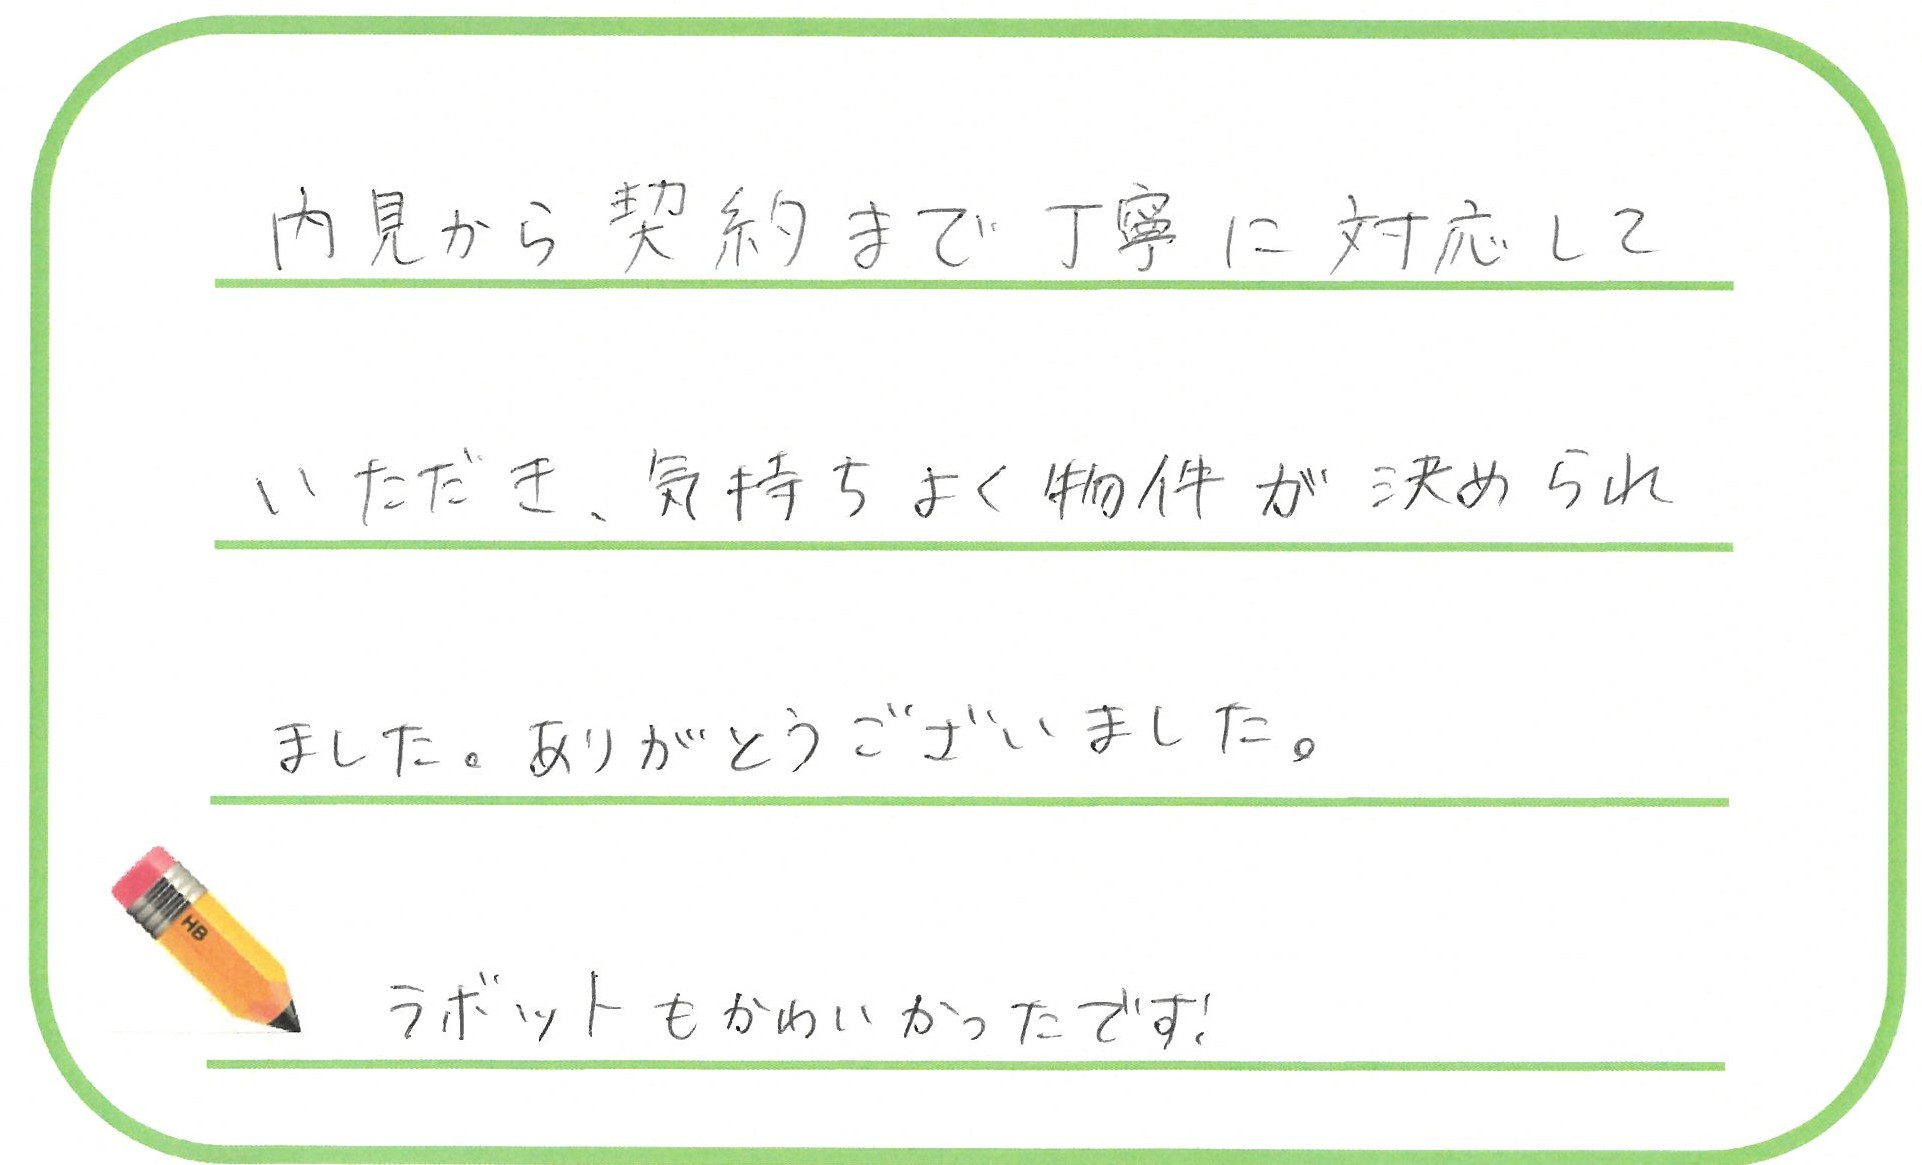 内見から契約まで丁寧に対応して
いただき、気持ちよく物件が決められ
ました。ありがとうございました。
HB
ラボットもかわいかったです!